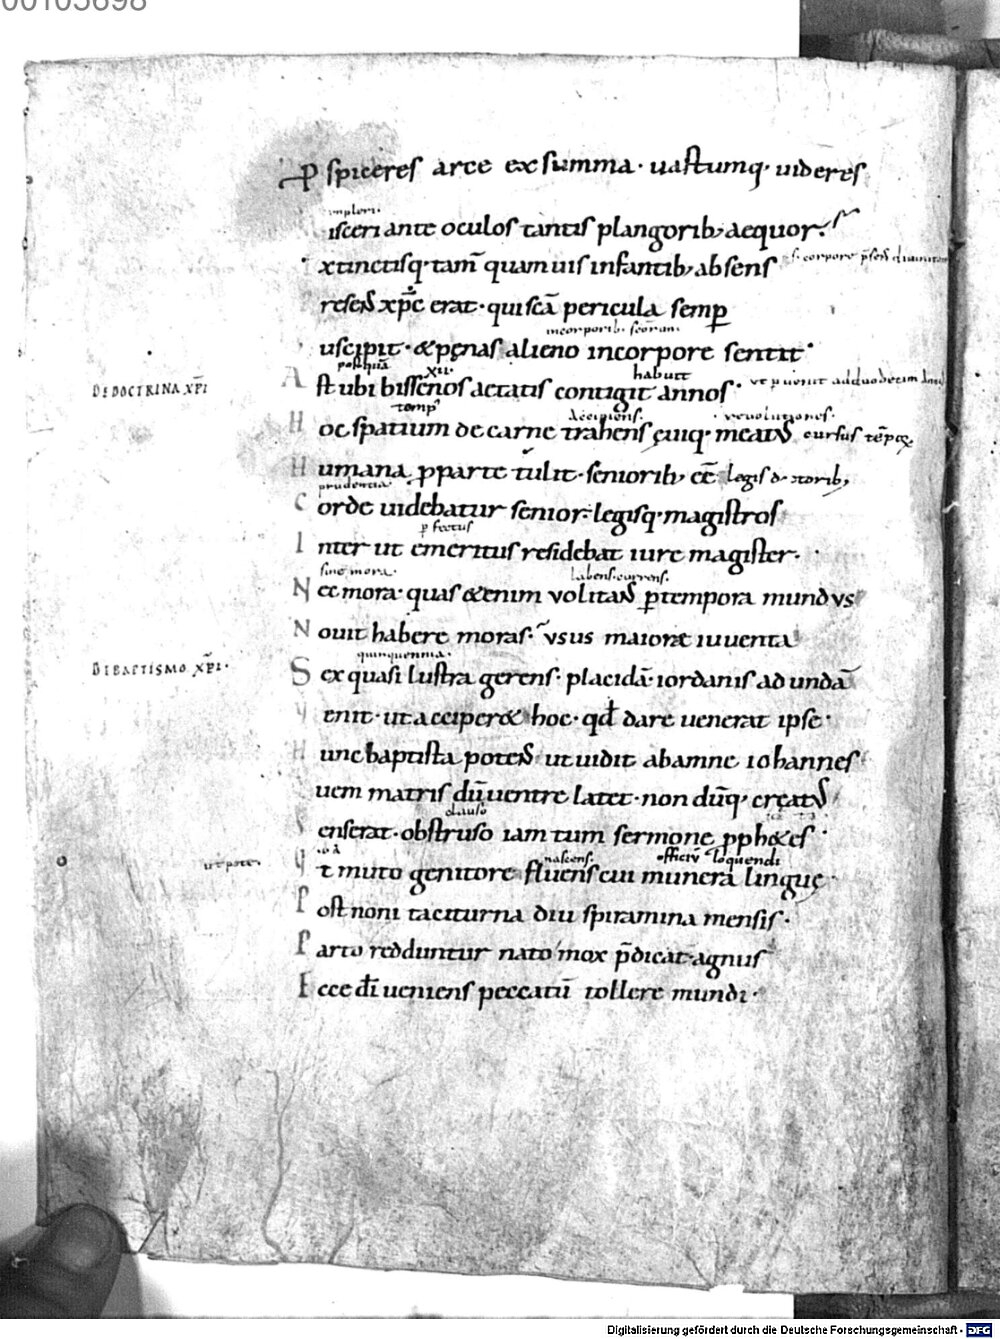 00105698
ꝑspiceres arce ex summa · uastumq· uideres
impleri·
isceri ante oculos tantis plangorib; aequor·
xtinctisq· tam̄ quam uis infantib; absens
s· corpore p̄sens diuinitate
resens xp̄c erat· qui sc̄a pericula semꝑ
incorporib· sc̄orum·
uscipit· & pęnas alieno incorpore sentit·
postquā xii· habuit
DE DOCTRINA XP̄I
Ast ubi bissenos aetatis contigit annos·
ut ꝑuenit ad duodecim
temp· Accipiens· reuolutiones·
Hoc spatium de carne trahens ęuiq· meatus cursus tēpoꝝ
Humana ꝓ parte tulit· seniorib; eē legis doctorib;
prudentia·
Corde uidebatur senior· legisq· magistros
ꝑfectus
Inter ut emeritus residebat iure magister·
sine mora· labens· currens·
Nec mora· quas &enim volitans ꝑ tempora mundus
Nouit habere moras· usus maiore iuuenta
quinquennia·
DE BAPTISMO XP̄I·
Sex quasi lustra gerens· placidā iordanis ad undā
enit· ut acciper& hoc· qđ dare uenerat ipse·
Hunc baptista potens ut uidit ab amne iohannes
uem matris dū uentre latet· non dūq· creatus
clauso
Senserat· obstruso iam tum sermone ꝓph&es·
nascens· officiū loquendi
ut pote·
t muto genitore fluens cui munera linguę·
Post noni taciturna diu spiramina mensis·
Parto redduntur nato mox p̄dicat· agnus
Ecce dī ueniens peccatū tollere mundi·
Digitalisierung gefördert durch die Deutsche Forschungsgemeinschaft - DFG